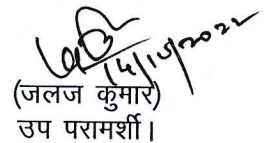 14/10/2022
(जलज कुमार)
उप परामर्शी।